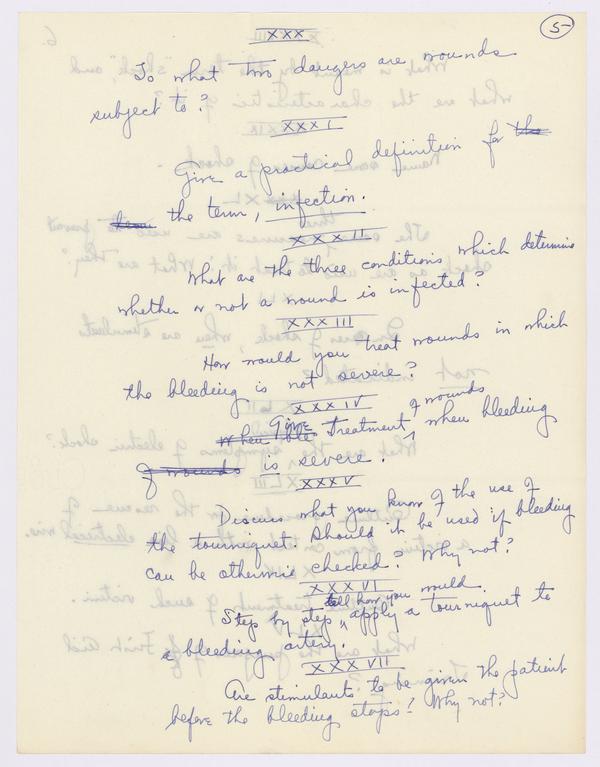 5-
XXX
To what two dangers are wounds
subject to?
XXXI
Give a practical definition for the
the term, infection.
XXXII
What are the three conditions which determine
whether or not a wound is infected?
XXXIII
How would you treat wounds in which
the bleeding is not severe?
XXXIV
Give of wounds
When the treatment, when bleeding
of wounds is severe.
XXXV
Discuss what you know of the use of
the tourniquet. Should it be used if bleeding
can be otherwise checked? Why not?
XXXVI
tell how you would
Step by step, apply a tourniquet to
a bleeding artery.
XXXVII
Are stimulants to be given the patient
before the bleeding stops? Why not?